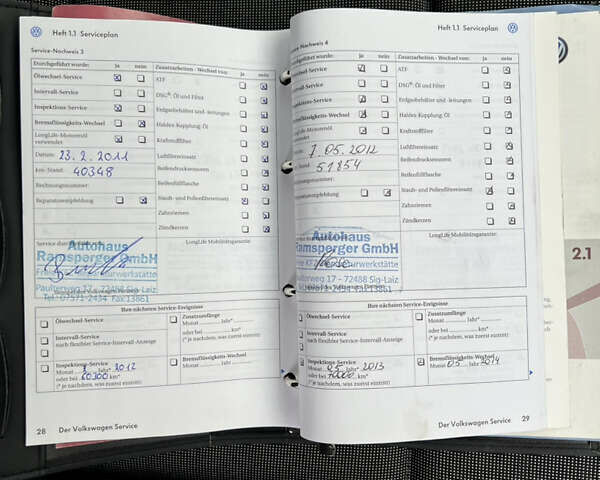 Heft 1.1 Serviceplan
Service-Nachweis 3
Durchgeführt wurde: ja nein
Zusatzarbeiten - Wechsel von: ja nein
Ölwechsel-Service
ATF
Intervall-Service
DSG®: Öl und Filter
Inspektions-Service
Erdgasbehälter und -leitungen
Bremsflüssigkeits-Wechsel
Haldex-Kupplung: Öl
LongLife-Motorenöl
verwendet
Kraftstofffilter
Datum: 23.2.2011
Luftfiltereinsatz
km-Stand: 40348
Reifendrucksensoren
Rechnungsnummer:
Reifenfüllflasche
Reparaturempfehlung
Staub- und Pollenfiltereinsatz
Zahnriemen
Zündkerzen
Service durchgeführt
LongLife Mobilitätsgarantie:
Autohaus
Ramsperger GmbH
Paulterweg 17 - 72488 Sig-Laiz
Tel.: 07571-2434 Fax 13861
Ihre nächsten Service-Ereignisse
Ölwechsel-Service
Zusatzumfänge
Monat Jahr*
oder bei km*
(* je nachdem, was zuerst eintritt)
Intervall-Service
nach flexibler Service-Intervall-Anzeige
Inspektions-Service
Monat 2012
oder bei 60300 km*
(* je nachdem, was zuerst eintritt)
Bremsflüssigkeits-Wechsel
Monat Jahr
28 Der Volkswagen Service
Heft 1.1 Serviceplan
Service-Nachweis 4
Durchgeführt wurde: ja nein
Zusatzarbeiten - Wechsel von: ja nein
Ölwechsel-Service
ATF
Intervall-Service
DSG®: Öl und Filter
Inspektions-Service
Erdgasbehälter und -leitungen
Bremsflüssigkeits-Wechsel
Haldex-Kupplung: Öl
LongLife-Motorenöl
verwendet
Kraftstofffilter
7.05.2012
Luftfiltereinsatz
km-Stand: 51854
Reifendrucksensoren
Rechnungsnummer:
Reifenfüllflasche
Reparaturempfehlung
Staub- und Pollenfiltereinsatz
Zahnriemen
Zündkerzen
LongLife Mobilitätsgarantie:
Autohaus
Ramsperger GmbH
Paulterweg 17 - 72488 Sig-Laiz
07571-2434 Fax 13861
Ihre nächsten Service-Ereignisse
Ölwechsel-Service
Zusatzumfänge
Monat Jahr*
oder bei km*
(* je nachdem, was zuerst eintritt)
Intervall-Service
nach flexibler Service-Intervall-Anzeige
Inspektions-Service
Monat 05 Jahr* 2013
oder bei km*
(* je nachdem, was zuerst eintritt)
Bremsflüssigkeits-Wechsel
Monat 05 2014
Der Volkswagen Service 29
2.1